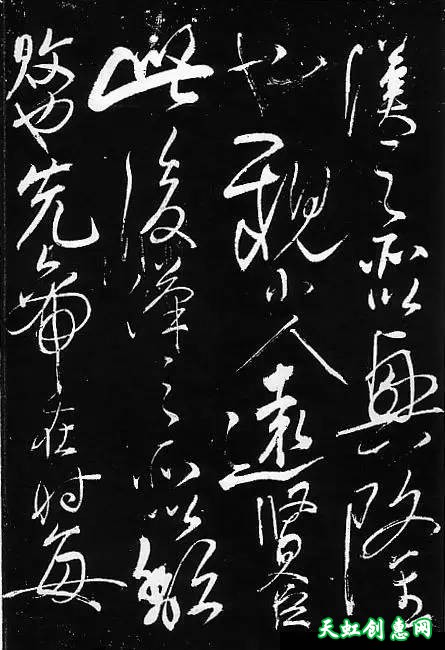 漢之所以興隆
也親小人遠賢臣
此後漢之所以頹
敗也先帝在时每
天虹创惠网